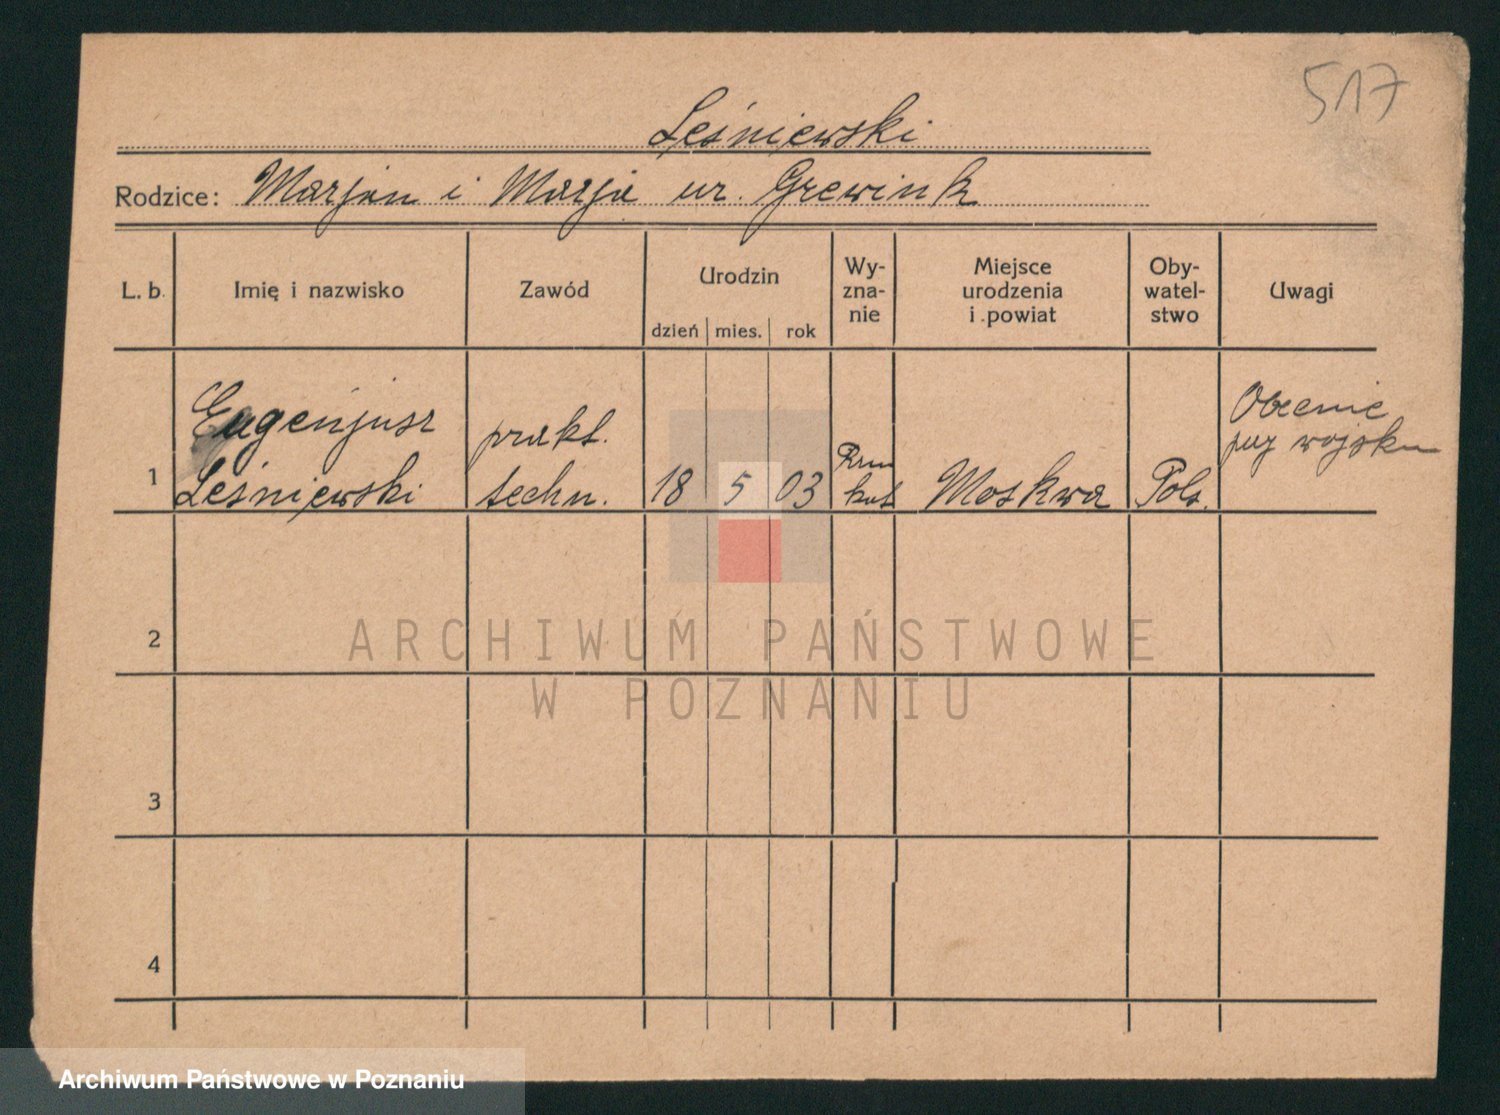 517
Leśniewski
Rodzice: Marjan i Marja ur. Grewink
L. b. Imię i nazwisko Zawód Urodzin dzień mies. rok Wy-zna-nie Miejsce urodzenia i powiat Oby-watel-stwo Uwagi
Eugenjusz prakt. Obecnie
przy wojsku
1 Leśniewski techn. 18 5 03 Rzm kat Moskwa Pols.
2
ARCHIWUM PAŃSTWOWE
W POZNANIU
3
4
Archiwum Państwowe w Poznaniu